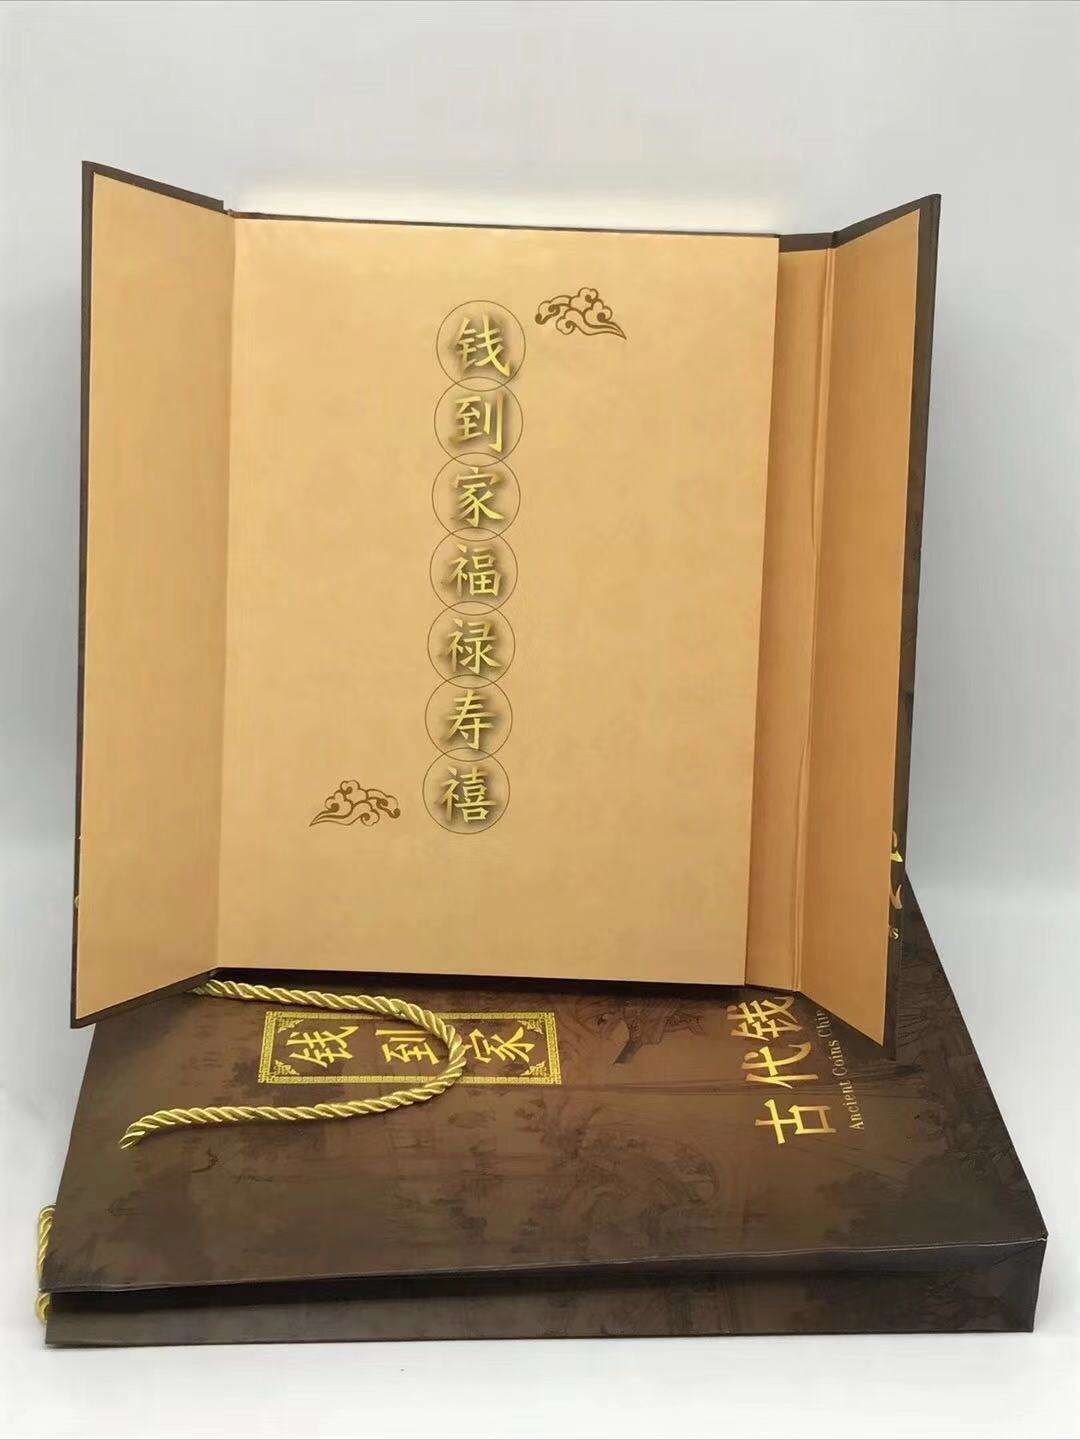 钱到家福禄寿禧
钱到家
古代钱
Ancient Coins